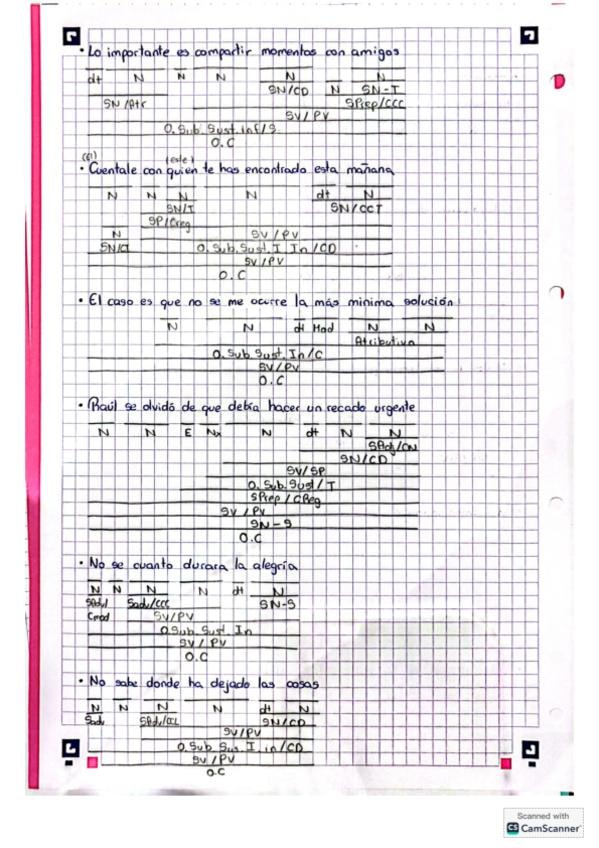 • Lo importante es compartir momentos con amigos
dt N N N N N N
SN/CD SN-T
SN/Atr SPrep/CCC
SV/PV
O.Sub.Sust.inf/S
O.C
(él) (este)
• Cuentale con quien te has encontrado esta mañana
N N N N dt N
SN/T SN/CCT
SP/Creg
N SV/PV
SN/CI O.Sub.Sust.I In/CD
SV/PV
O.C
• El caso es que no se me ocurre la más minima solución
N N dt Mod N N
Atributiva
O.Sub Sust.In/C
SV/PV
O.C
• Raúl se olvidó de que debía hacer un recado urgente
N N E Nx N dt N N
SAdj/CN
SN/CD
SV/SP
O.Sub.Sust/T
SPrep/CReg
SV/PV
SN-S
O.C
• No se cuanto durara la alegría
N N N N dt N
SAdv/ Sadv/CCC SN-S
Cmod SV/PV
O.Sub.Sust.In
SV/PV
O.C
• No sabe donde ha dejado las cosas
N N N N dt N
Sadv SAdv/CCL SN/CD
SV/PV
O.Sub Sus.I.in/CD
SV/PV
O.C
Scanned with
CS CamScanner